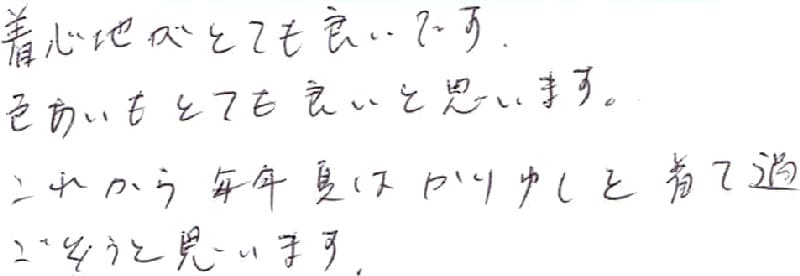 着心地がとても良いです.
色あいもとても良いと思います。
これから毎年夏はかりゆしを着て過
ごそうと思います.